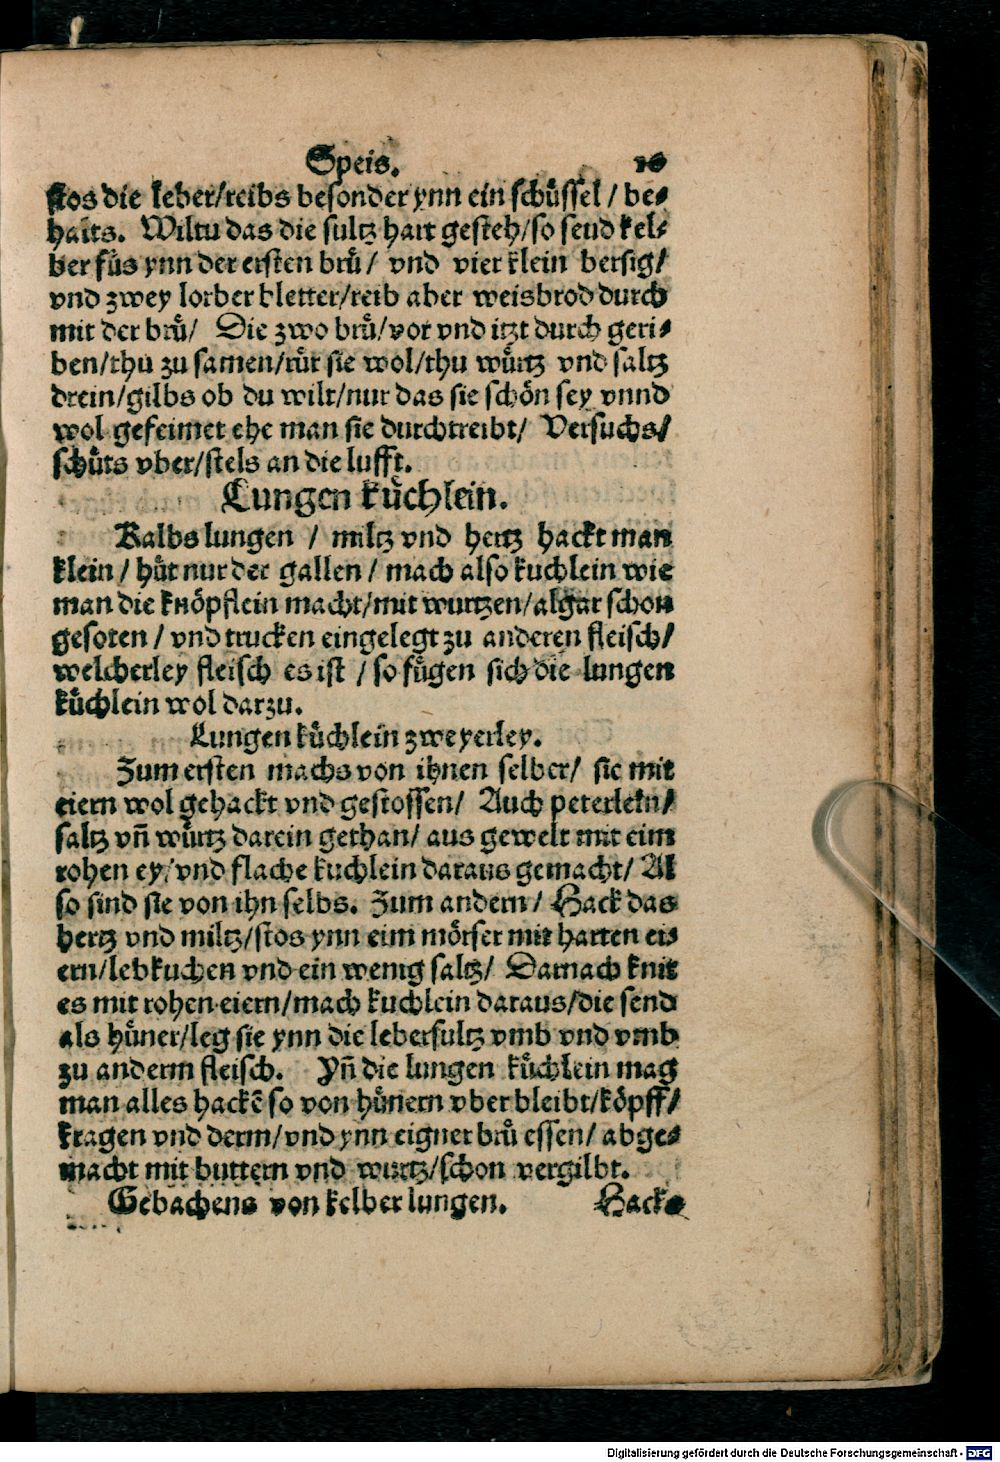 Speis. 16
stos die leber/reibs besonder ynn ein schüssel / be⸗
halts. Wiltu das die sultz hart gesteh/so send kel⸗
ber füs ynn der ersten brü/ vnd vier klein bersig/
vnd zwey lorber bletter/reib aber weisbrod durch
mit der brü/ Die zwo brü/vor vnd itzt durch geri⸗
ben/thu zu samen/rür sie wol/thu würtz vnd saltz
drein/gilbs ob du wilt/nur das sie schön sey vnnd
wol gefeimet ehe man sie durchtreibt/ Versuchs/
schüts vber/stels an die lufft.
Lungen küchlein.
Kalbs lungen / miltz vnd hertz hackt man
klein / hüt nur der gallen / mach also kuchlein wie
man die knöpflein macht/mit wurtzen/algar schon
gesoten / vnd trucken eingelegt zu anderen fleisch/
welcherley fleisch es ist / so fügen sich die lungen
küchlein wol darzu.
Lungen küchlein zweyerley.
Zum ersten machs von ihnen selber/ sie mit
eiern wol gehackt vnd gestossen/ Auch peterlein/
saltz vñ würtz darein gethan/ aus gewelt mit eim
rohen ey/vnd flache kuchlein daraus gemacht/ Al
so sind sie von ihn selbs. Zum andern/ Hack das
hertz vnd miltz/stos ynn eim mörser mit harten ei⸗
ern/lebkuchen vnd ein wenig saltz/ Darnach knit
es mit rohen eiern/mach kuchlein daraus/die send
als hüner/leg sie ynn die lebersultz vmb vnd vmb
zu anderm fleisch. Yñ die lungen küchlein mag
man alles hackē so von hünern vber bleibt/köpff/
kragen vnd derm/vnd ynn eigner brü essen/ abge⸗
macht mit buttern vnd wurtz/schon vergilbt.
Gebachens von kelber lungen. Hack⸗
Digitalisierung gefördert durch die Deutsche Forschungsgemeinschaft - DFG